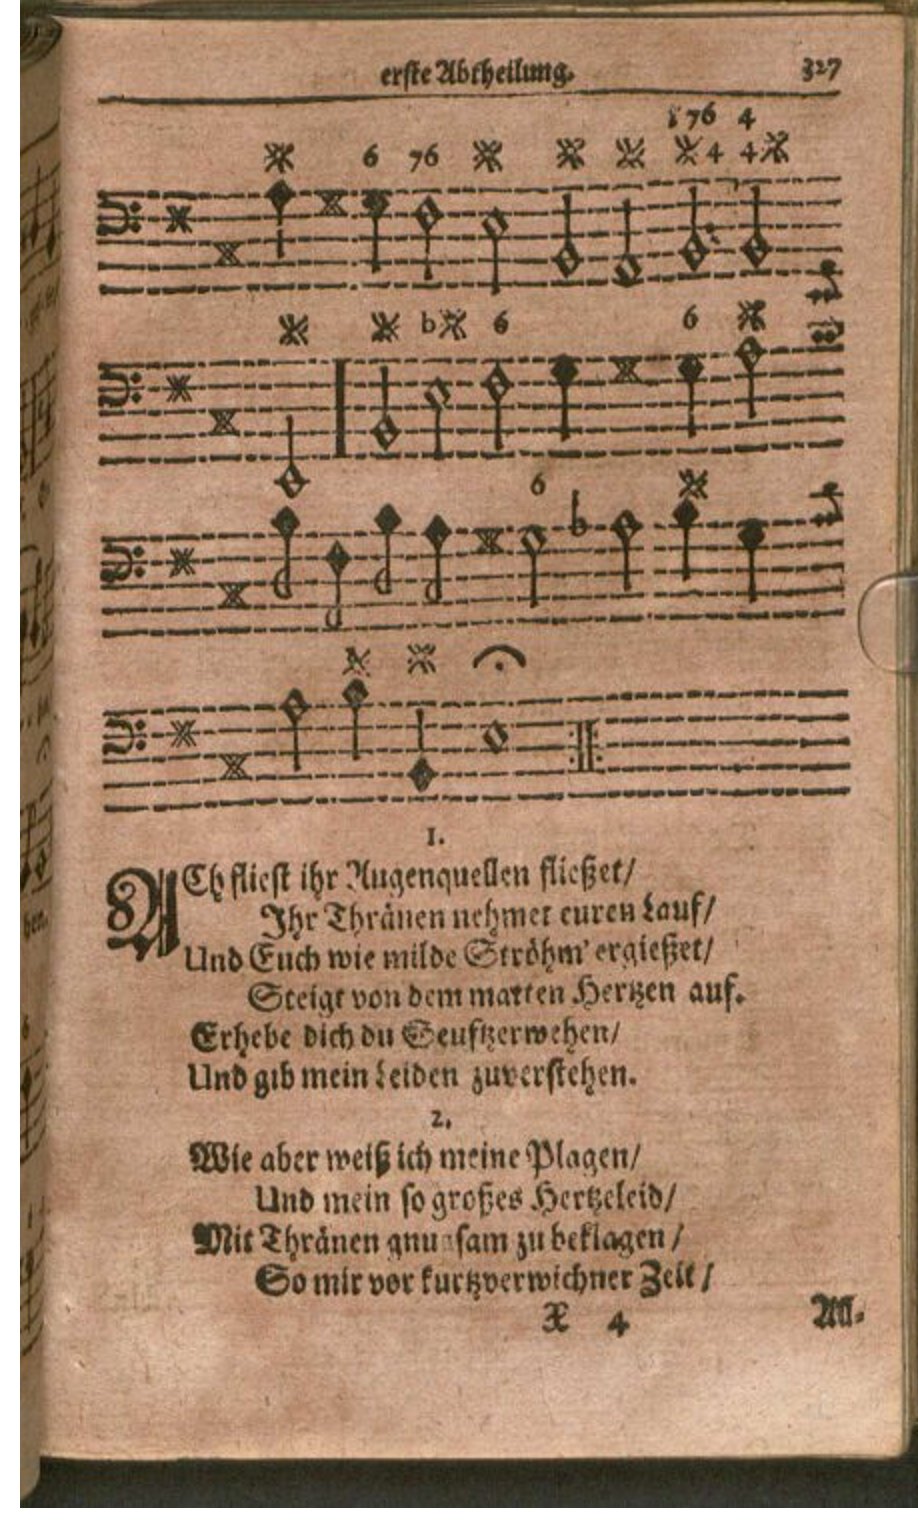 erste Abtheilung.
327
76 4
6 76 4 4
b 6 6
6
I.
ACh fliest ihr Augenquellen fließet/
Ihr Thränen nehmet euren Lauf/
Und Euch wie milde Ströhm' ergießet/
Steigt von dem matten Hertzen auf.
Erhebe dich du Seuftzerwehen/
Und gib mein Leiden zuverstehen.
2.
Wie aber weiß ich meine Plagen/
Und mein so großes Hertzeleid/
Mit Thränen gnugsam zu beklagen/
So mir vor kurtzverwichner Zeit/
X 4
All-